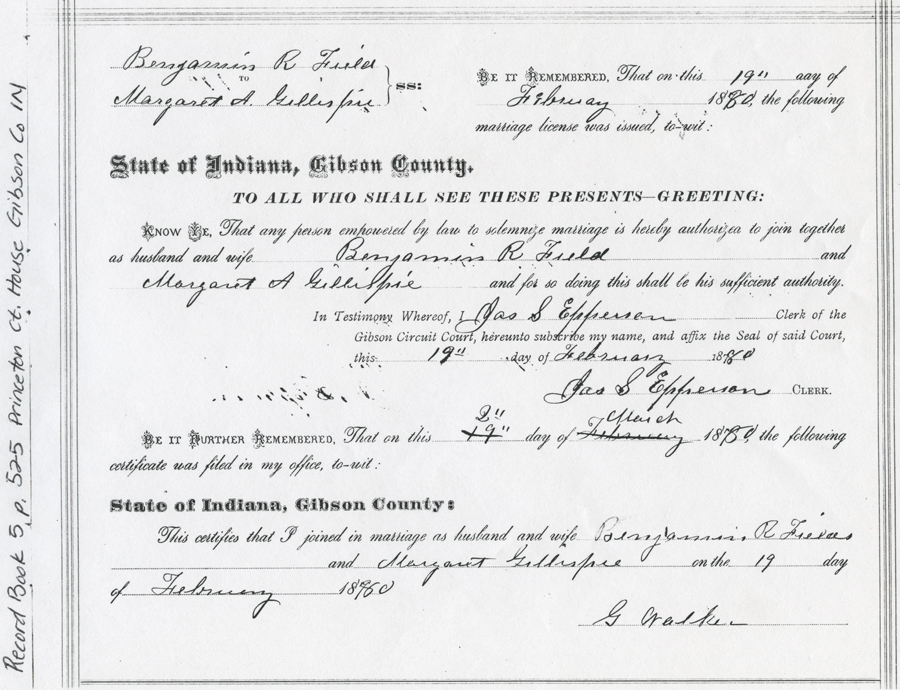 Benjamin R Field
TO
Margaret A. Gillispie
ss:
BE IT REMEMBERED, That on this 19" day of
February 1880, the following
marriage license was issued, to-wit:
State of Indiana, Gibson County.
TO ALL WHO SHALL SEE THESE PRESENTS—GREETING:
KNOW YE, That any person empowered by law to solemnize marriage is hereby authorized to join together
as husband and wife Benjamin R Field and
Margaret A Gillispie and for so doing this shall be his sufficient authority.
In Testimony Whereof, I Jas S Epperson Clerk of the
Gibson Circuit Court, hereunto subscribe my name, and affix the Seal of said Court,
this 19" day of February 1880
Jas S Epperson CLERK.
2" March
BE IT FURTHER REMEMBERED, That on this 19" day of February 1880, the following
certificate was filed in my office, to-wit:
State of Indiana, Gibson County:
This certifies that I joined in marriage as husband and wife Benjamin R Fields
and Margaret Gillispie on the 19 day
of February 1880
G Walker
Record Book 5, p. 525 Princeton Ct. House Gibson Co IN